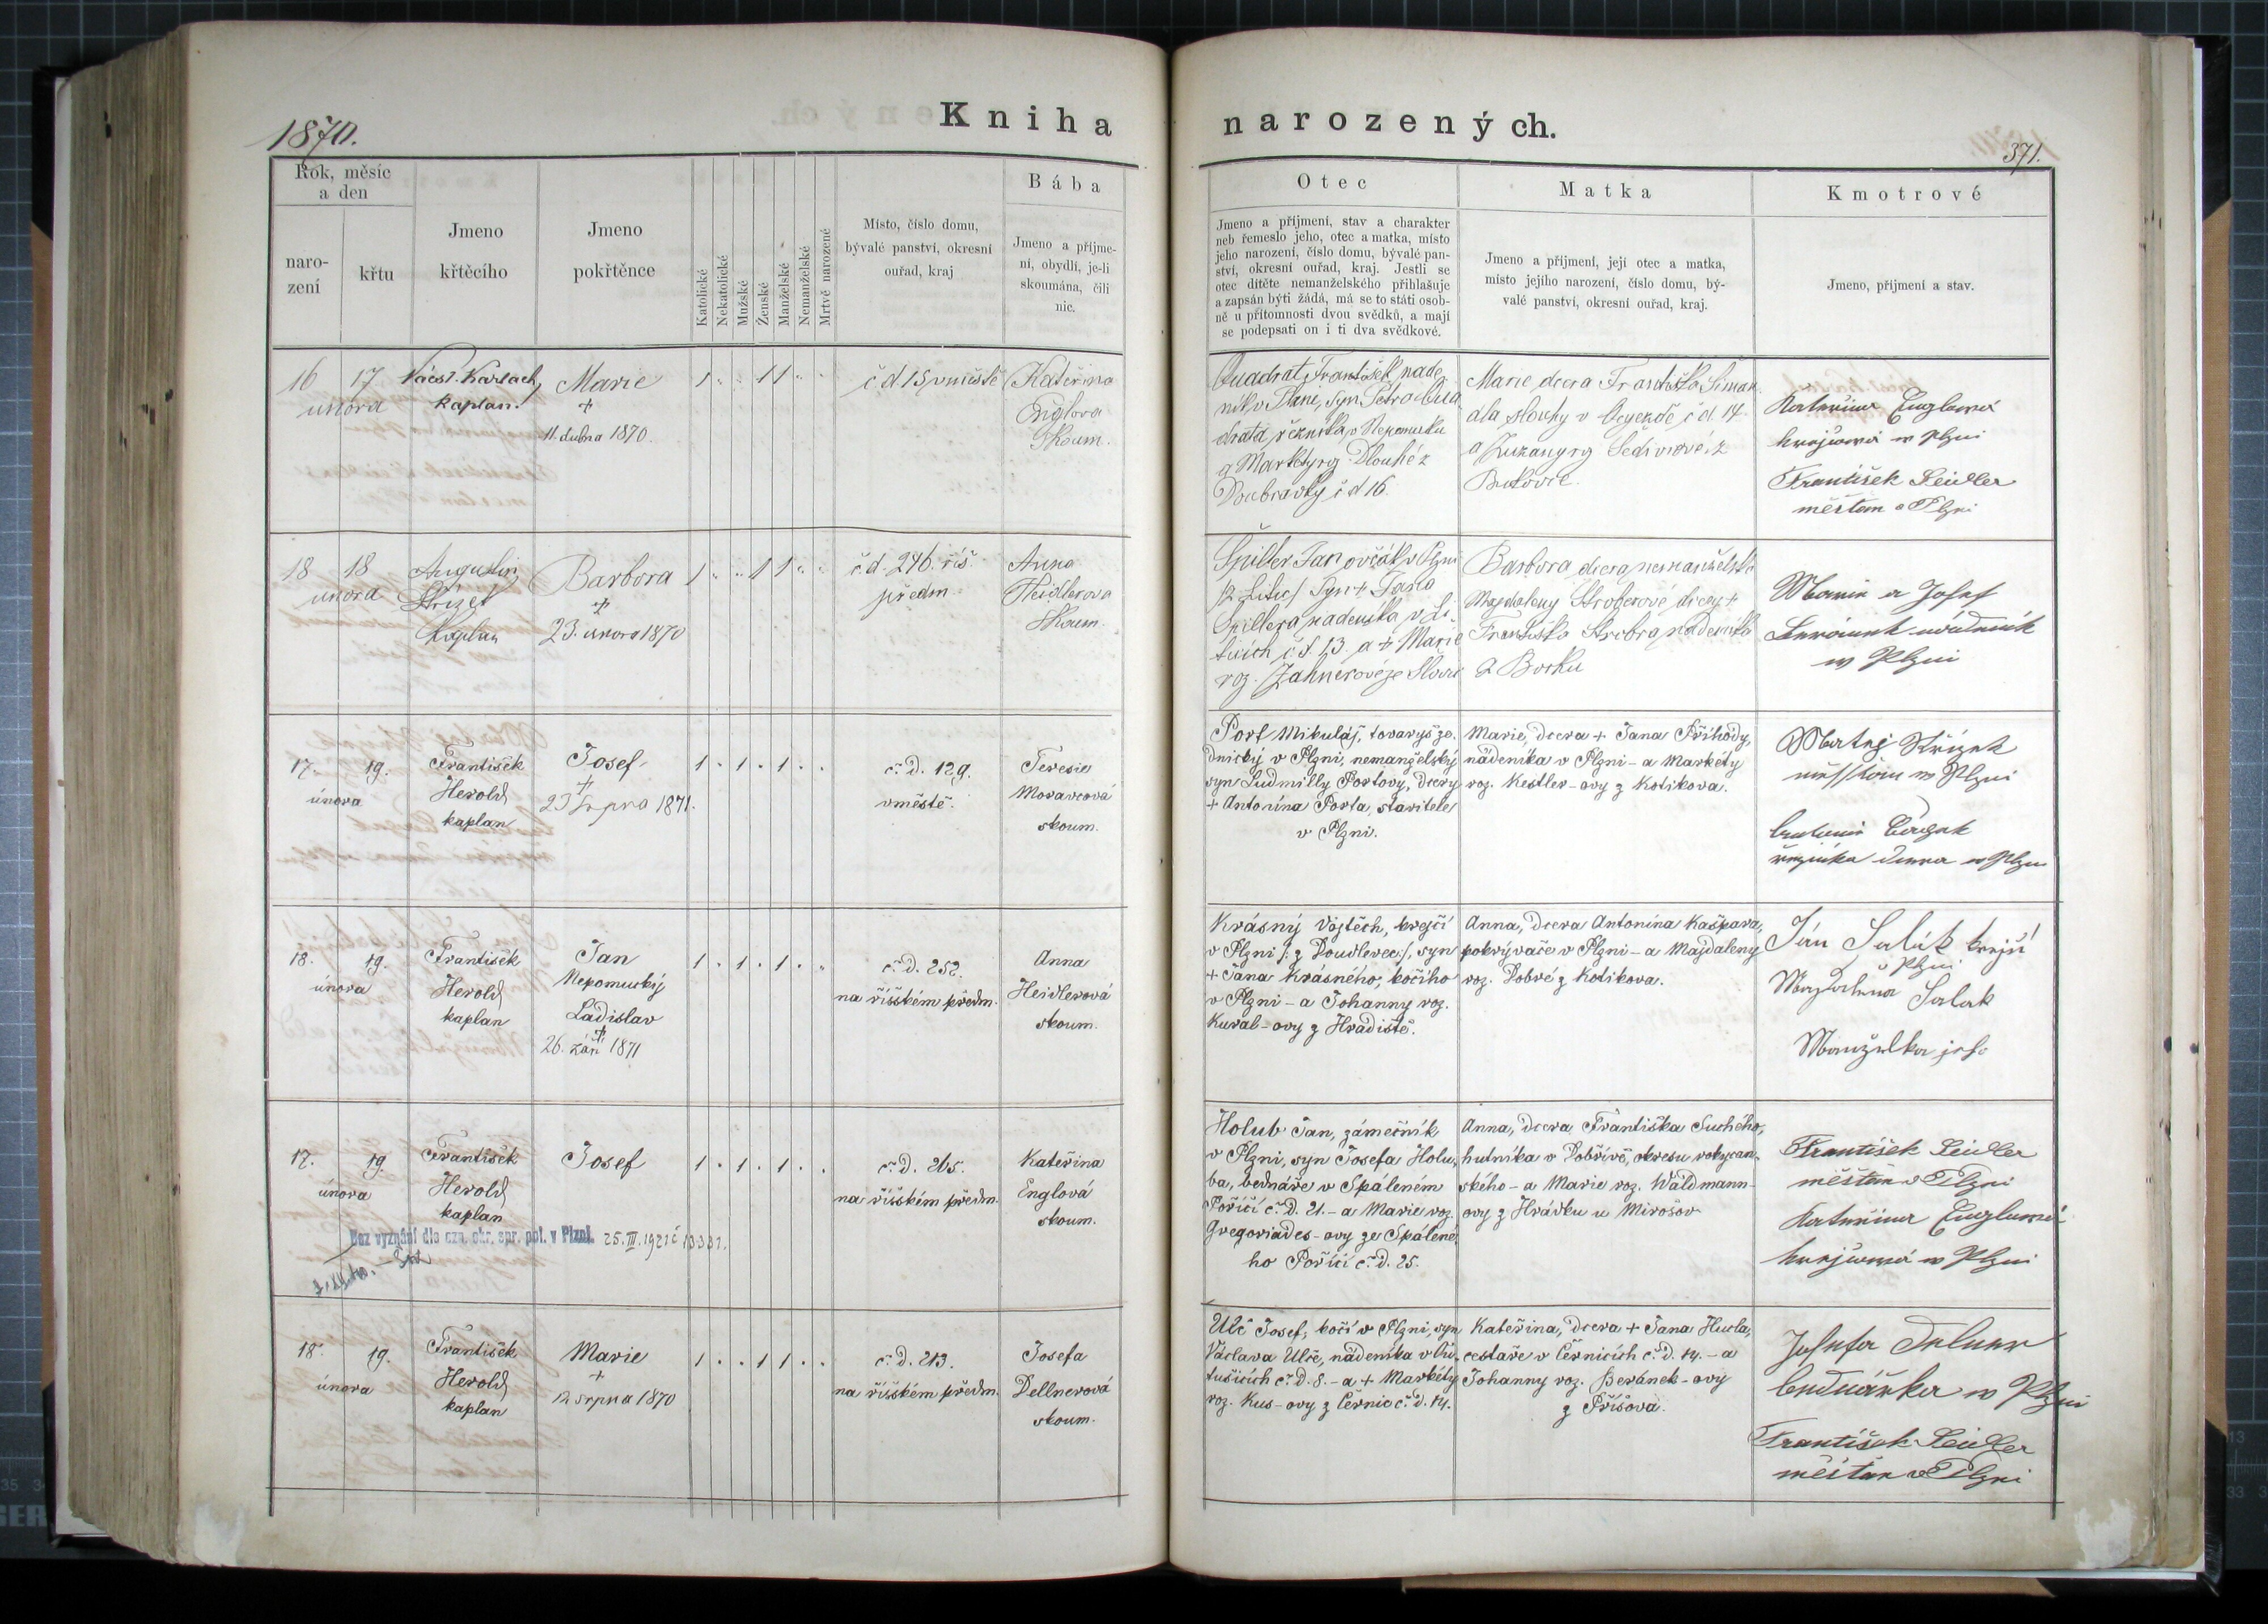 1870.
Kniha narozených.
371.
Rok, měsíc
a den
naro-
zení
křtu
Jmeno
křtěcího
Jmeno
pokřtěnce
Katolické
Nekatolické
Mužské
Ženské
Manželské
Nemanželské
Mrtvě narozené
Místo, číslo domu,
bývalé panství, okresní
ouřad, kraj
Bába
Jmeno a příjme-
ní, obydlí, je-li
skoumána, čili
nic.
Otec
Jmeno a příjmení, stav a charakter
neb řemeslo jeho, otec a matka, místo
jeho narození, číslo domu, bývalé pan-
ství, okresní ouřad, kraj. Jestli se
otec dítěte nemanželského přihlašuje
a zapsán býti žádá, má se to státi osob-
ně u přítomnosti dvou svědků, a mají
se podepsati on i ti dva svědkové.
Matka
Jmeno a příjmení, její otec a matka,
místo jejího narození, číslo domu, bý-
valé panství, okresní ouřad, kraj.
Kmotrové
Jmeno, příjmení a stav.
16 17
února
Kaplan.
Marie
+
11. dubna 1870.
1 " " 1 1 " "
č d 15 v městě
Kateřina
Englova
Skoum.
Quadrat František, náde-
ník v Plzni, syn Petra Qua
drata, řezníka v Nepomuku
a Markéty rz. Dlouhé z
Doubravky č d 16.
Marie dcera Františka Siman
dla slouhy v č d 14
a Zuzany rz Šedivcové z
Bukovce.
Kateřina Englová
krejčová w Plzni
František Seidler
měšťan v Plzni
18 18
února
Augustin
Střízek
Kaplan
Barbora
+
23. února 1870
1 " " 1 1 " "
č d. 246. říš.
předm
Anna
Heidlerova
Skoum.
Špiller Jan ovčák v Plzni
/z Litic/ Syn + Jana
Špillera nádeníka v Li-
ticích č. d. 13. a + Marie
roz. Zahnerové ze Slovic
Barbora dcera nemanželská
Magdaleny Štroberové dcery +
Františka Strobra nádeníka
z Borku
Marie a Josef
w Plzni
17. 19.
února
František
Herold
kaplan
Josef
+
23 Srpna 1871.
1 . 1 . 1 . .
č. D. 129.
v městě.
Teresie
Moravcová
skoum.
Portl Mikuláš, tovaryš ze-
dnický v Plzni, nemanželský
syn Ludmilly Portlovy, dcery
+ Antonína Portla, stavitele
v Plzni.
Marie, dcera + Jana Příhody,
nádeníka v Plzni – a Markéty
roz. Kestler–ovy z Kotikova.
Matěj Křížek
měssťan w Plzni
dcera w Plzni
18. 19.
února
František
Herold
kaplan
Jan
Nepomucký
Ladislav
+
26. září 1871
1 . 1 . 1 . .
č. D. 252.
na říšském předm.
Anna
Heidlerová
skoum.
Krásný Vojtěch, krejčí
v Plzni /: z Doudlevec:/, syn
+ Jana Krásného, kočího
v Plzni – a Johanny roz.
Kural–ovy z Hradiště.
Anna, dcera Antonína Kašpara,
pokrývače v Plzni – a Majdaleny
roz. Dobré z Kotikova.
Ján Salák krejčí
v Plzni
Magdalena Salak
Manželka jeho
17. 19.
února
František
Herold
kaplan
Josef
1 . 1 . 1 . .
č. D. 265.
na říšském předm.
Kateřina
Englová
skoum.
Bez vyznání dle ozn. okr. spr. pol. v Plzni. 25. III. 1921 č 13331.
Holub Jan, zámečník
v Plzni, syn Josefa Holu-
ba, bednáře v Spáleném
Poříčí č. D. 21. – a Marie roz.
Gregoriades–ovy ze Spálené-
ho Poříčí č. D. 25.
Anna, dcera Františka Suchého,
hutníka v Dobřívě, okresu rokycan-
ského – a Marie roz. Waldmann-
ovy z Hrádku u Mirošov
František Seidler
měšťan v Plzni
Kateřina Englová
krejčová w Plzni
18. 19.
února
František
Herold
kaplan
Marie
+
12 srpna 1870
1 . . 1 1 . .
č. D. 213.
na říšském předm.
Josefa
Dellnerová
skoum.
Ulč Josef, kočí v Plzni, syn
Václava Ulče, nádeníka v Li-
tušicích č. D. 8. – a + Markéty
roz. Kus–ovy z Černic č. D. 14.
Kateřina, dcera + Jana Hucla,
cestaře v Černicích č. D. 14. – a
Johanny roz. Beránek–ovy
z Příšova.
Josefa Delner
bednářka w Plzni
František Seidler
měšťan v Plzni